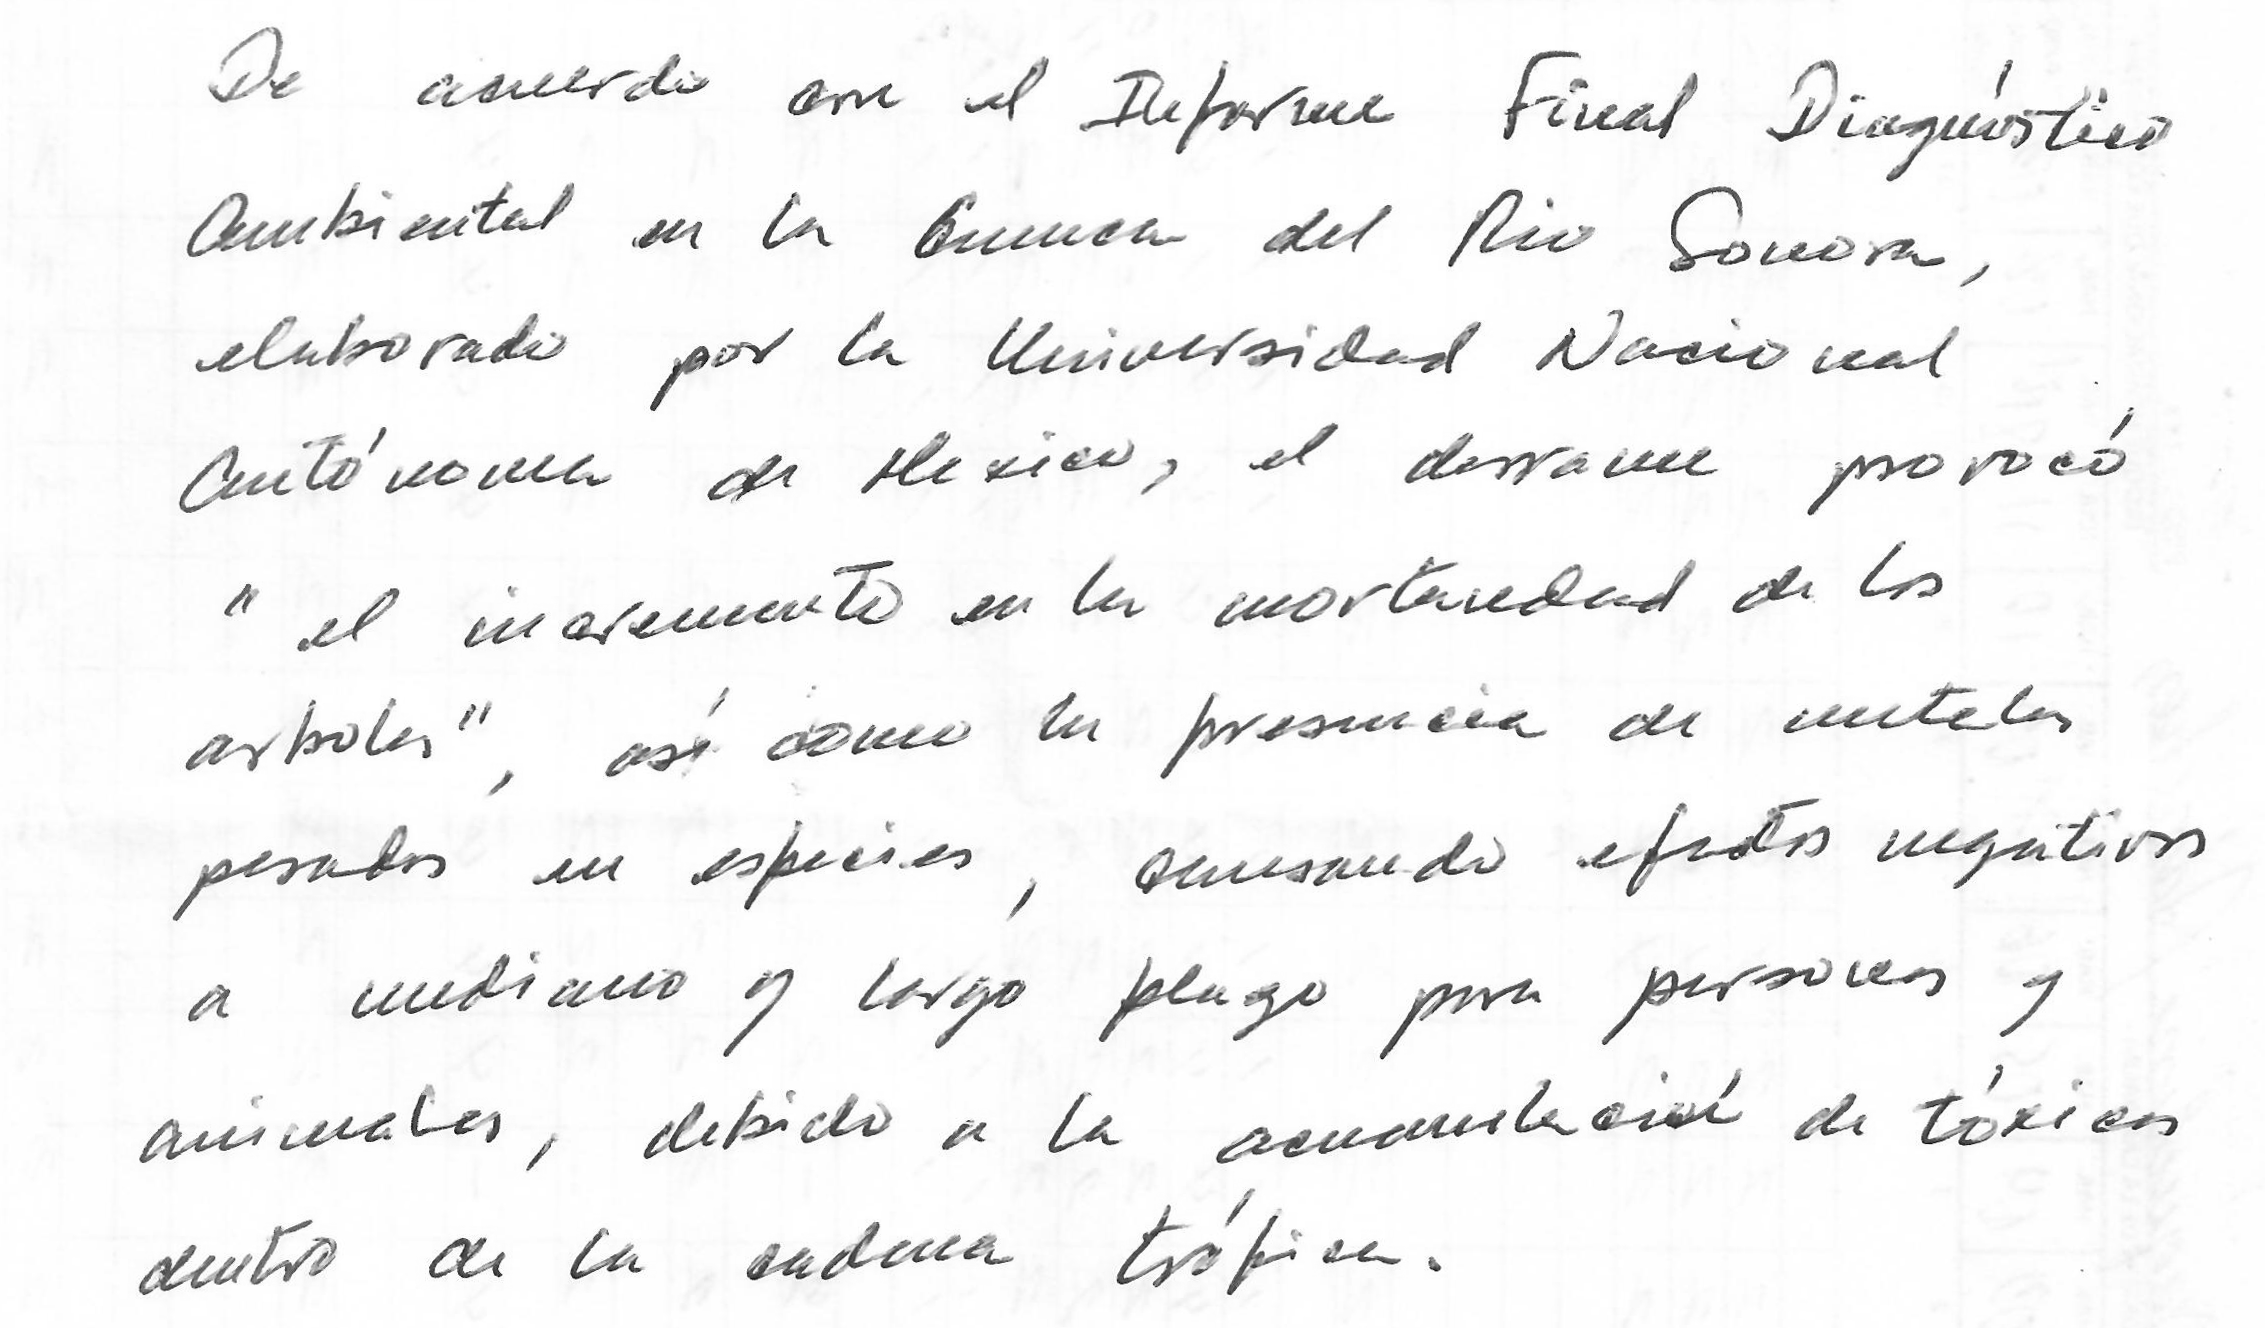 De acuerdo con el Informe Final Diagnóstico
Ambiental en la Cuenca del Rio Sonora,
elaborado por la Universidad Nacional
Autónoma de Mexico, el derrame provocó
"el incremento en la mortandad de los
arboles", así como la presencia de metales
pesados en especies, causando efectos negativos
a mediano y largo plazo para personas y
animales, debido a la acumulación de tóxicos
dentro de la cadena trófica.